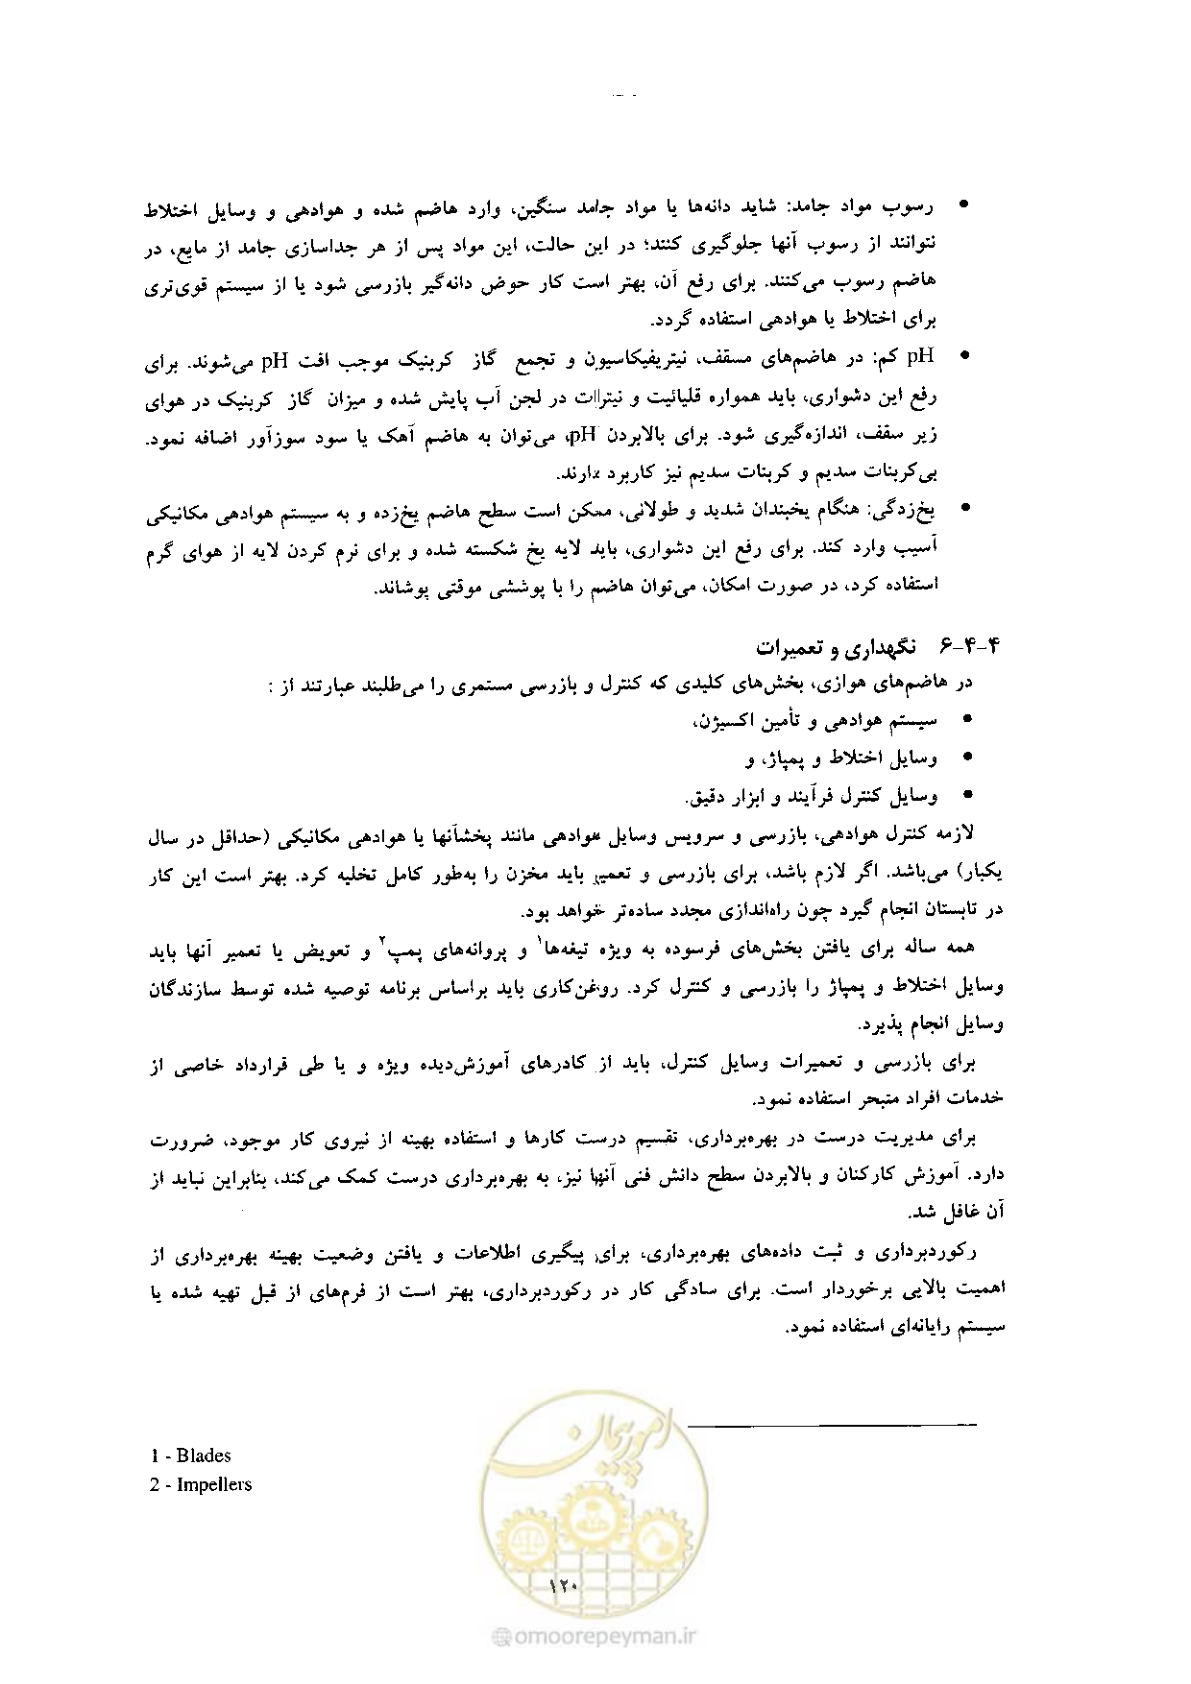 • رسوب مواد جامد: شاید دانه‌ها یا مواد جامد سنگین، وارد هاضم شده و هوادهی و وسایل اختلاط
نتوانند از رسوب آنها جلوگیری کنند؛ در این حالت، این مواد پس از هر جداسازی جامد از مایع، در
هاضم رسوب می‌کنند. برای رفع آن، بهتر است کار حوض دانه‌گیر بازرسی شود یا از سیستم قوی‌تری
برای اختلاط یا هوادهی استفاده گردد.
• pH کم: در هاضم‌های مسقف، نیتریفیکاسیون و تجمع گاز کربنیک موجب افت pH می‌شوند. برای
رفع این دشواری، باید همواره قلیائیت و نیترات در لجن آب پایش شده و میزان گاز کربنیک در هوای
زیر سقف، اندازه‌گیری شود. برای بالابردن pH، می‌توان به هاضم آهک یا سود سوزآور اضافه نمود.
بی‌کربنات سدیم و کربنات سدیم نیز کاربرد دارند.
• یخ‌زدگی: هنگام یخبندان شدید و طولانی، ممکن است سطح هاضم یخ‌زده و به سیستم هوادهی مکانیکی
آسیب وارد کند. برای رفع این دشواری، باید لایه یخ شکسته شده و برای نرم کردن لایه از هوای گرم
استفاده کرد، در صورت امکان، می‌توان هاضم را با پوششی موقتی پوشاند.
۶-۴-۴ نگهداری و تعمیرات
در هاضم‌های هوازی، بخش‌های کلیدی که کنترل و بازرسی مستمری را می‌طلبند عبارتند از :
• سیستم هوادهی و تأمین اکسیژن،
• وسایل اختلاط و پمپاژ، و
• وسایل کنترل فرآیند و ابزار دقیق.
لازمه کنترل هوادهی، بازرسی و سرویس وسایل هوادهی مانند پخشانها یا هوادهی مکانیکی (حداقل در سال
یکبار) می‌باشد. اگر لازم باشد، برای بازرسی و تعمیر باید مخزن را به‌طور کامل تخلیه کرد. بهتر است این کار
در تابستان انجام گیرد چون راه‌اندازی مجدد ساده‌تر خواهد بود.
همه ساله برای یافتن بخش‌های فرسوده به ویژه تیغه‌ها۱ و پروانه‌های پمپ۲ و تعویض یا تعمیر آنها باید
وسایل اختلاط و پمپاژ را بازرسی و کنترل کرد. روغن‌کاری باید براساس برنامه توصیه شده توسط سازندگان
وسایل انجام پذیرد.
برای بازرسی و تعمیرات وسایل کنترل، باید از کادرهای آموزش‌دیده ویژه و یا طی قرارداد خاصی از
خدمات افراد متبحر استفاده نمود.
برای مدیریت درست در بهره‌برداری، تقسیم درست کارها و استفاده بهینه از نیروی کار موجود، ضرورت
دارد. آموزش کارکنان و بالابردن سطح دانش فنی آنها نیز، به بهره‌برداری درست کمک می‌کند، بنابراین نباید از
آن غافل شد.
رکوردبرداری و ثبت داده‌های بهره‌برداری، برای پیگیری اطلاعات و یافتن وضعیت بهینه بهره‌برداری از
اهمیت بالایی برخوردار است. برای سادگی کار در رکوردبرداری، بهتر است از فرم‌های از قبل تهیه شده یا
سیستم رایانه‌ای استفاده نمود.
1 - Blades
2 - Impellers
امور پیمان
۱۲۰
@omoorepeyman.ir